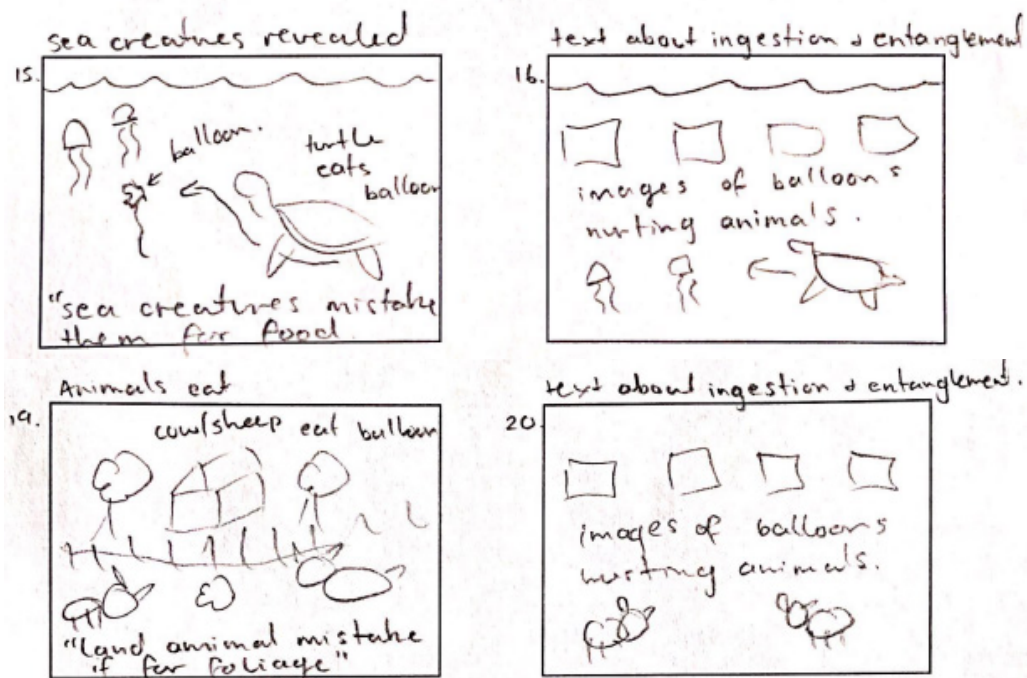 sea creatures revealed
15.
balloon.
turtle
eats
balloon
"sea creatures mistake
them for food.
text about ingestion & entanglement
16.
images of balloons
hurting animals.
Animals eat
19.
cow/sheep eat balloon
"Land animal mistake
if for foliage"
text about ingestion & entanglement.
20.
images of balloons
hurting animals.